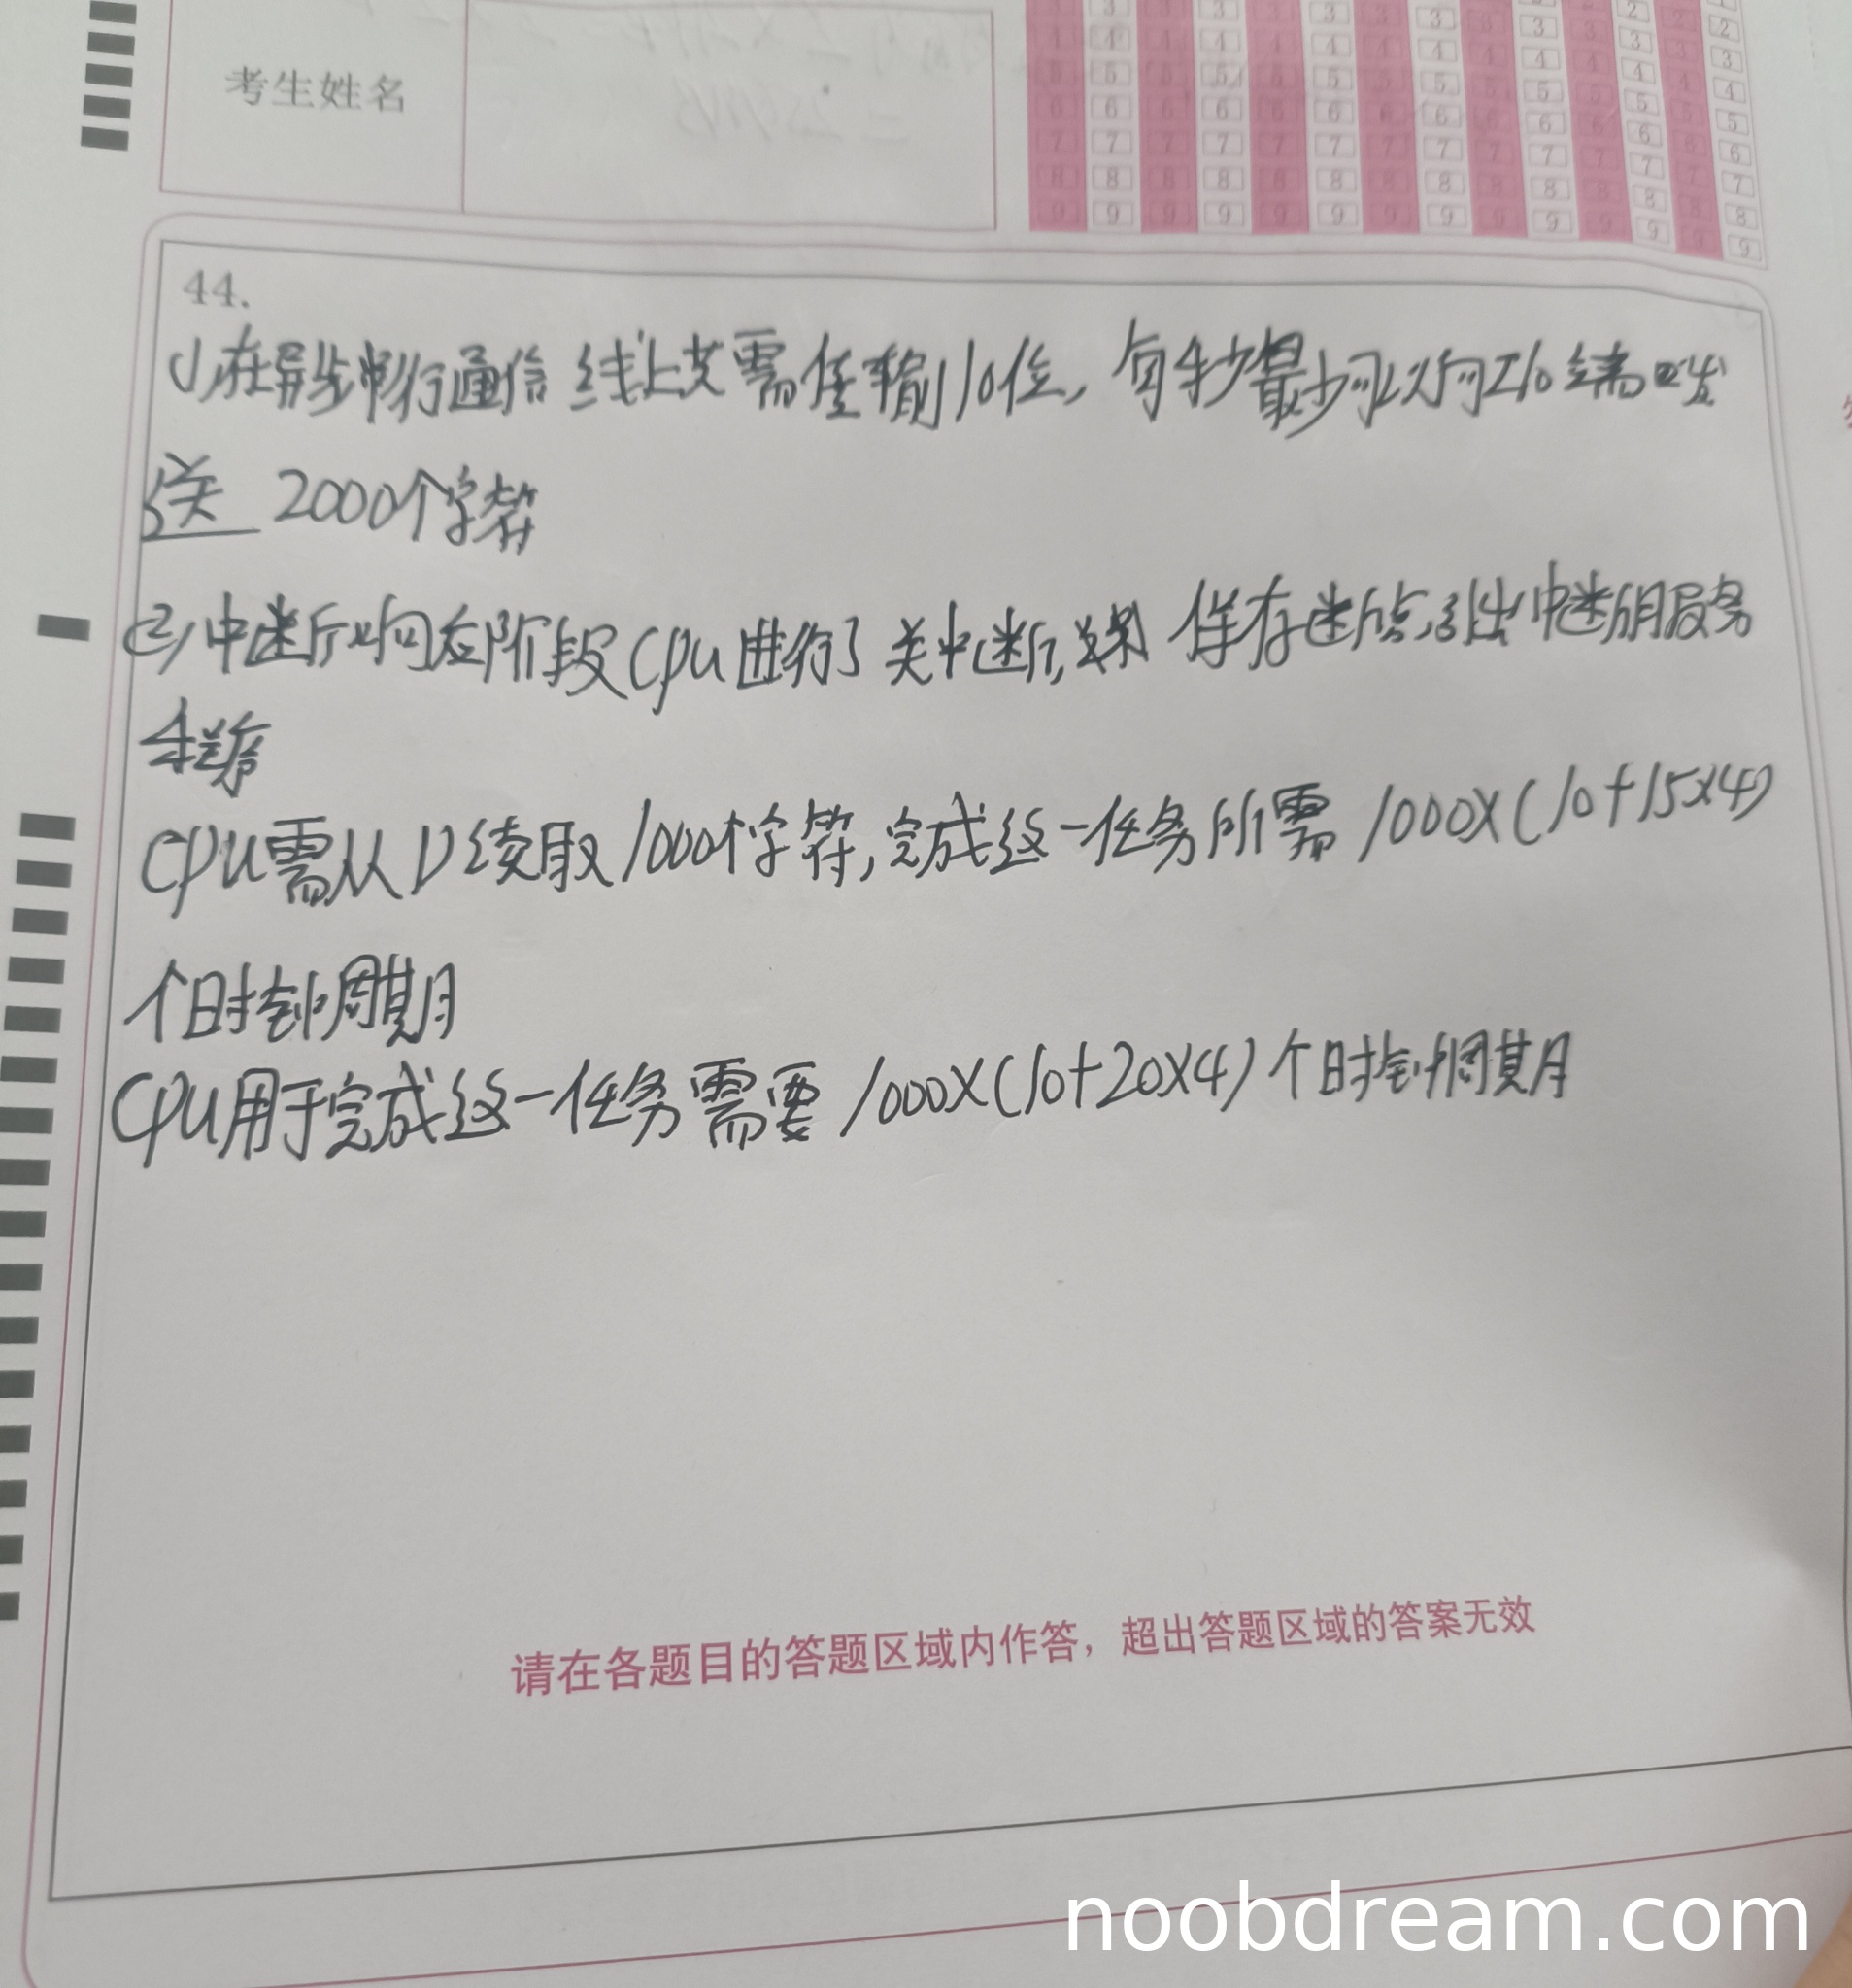 考生姓名
44.
(1)在异步串行通信线上共需传输10位，每秒最多可以向I/O端口发
送 2000个字符
(2)中断响应阶段CPU进行了 关中断, 保存断点,引出中断服务
程序
CPU需从D读取1000个字符,完成这一任务所需 1000X(10+15X4)
个时钟周期
CPU用于完成这一任务需要 1000X(10+20X4)个时钟周期
请在各题目的答题区域内作答，超出答题区域的答案无效
noobdream.com